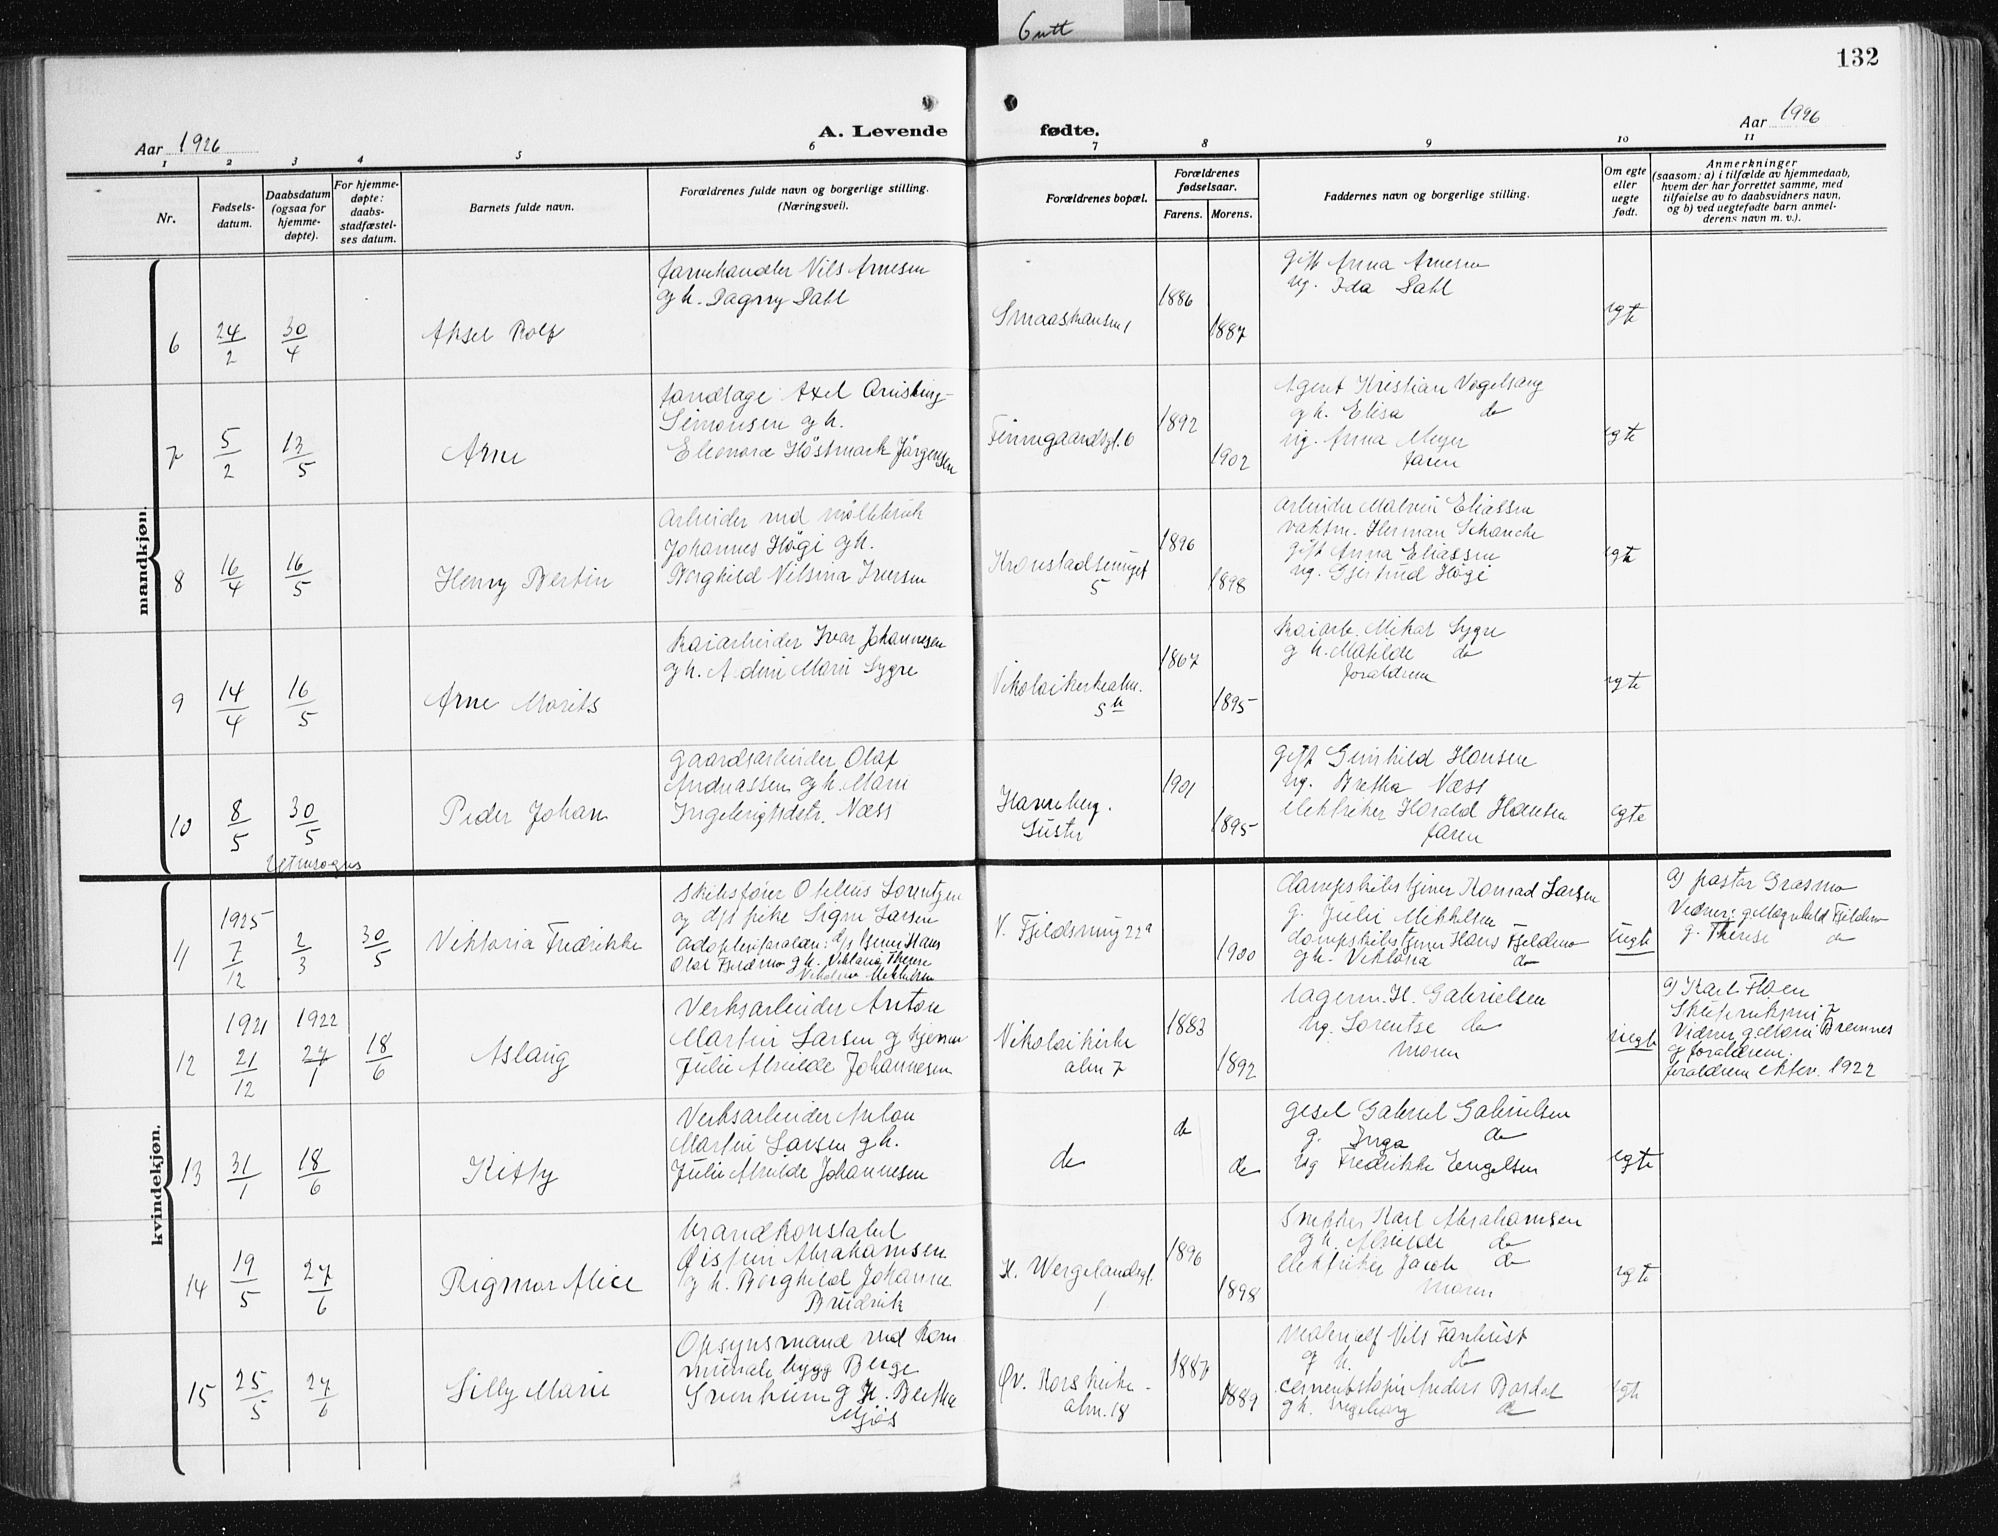 Gutt
132
A. Levende fødte.
Aar 1926
Aar 1926
1 2 3 4 5 6 7 8 9 10 11
Nr.
Fødsels-
datum.
Daabsdatum
(ogsaa for
hjemme-
døpte).
For hjemme-
døpte:
daabs-
stadfæstel-
ses datum.
Barnets fulde navn.
Forældrenes fulde navn og borgerlige stilling.
(Næringsvei).
Forældrenes bopæl.
Forældrenes
fødselsaar.
Farens. Morens.
Faddernes navn og borgerlige stilling.
Om egte
eller
uegte
født.
Anmerkninger
(saasom: a) i tilfælde av hjemmedaab,
hvem der har forrettet samme, med
tilføielse av to daabsvidners navn,
og b) ved uegtefødte barn anmel-
derens navn m. v.).
mandkjøn.
6
24/2
30/4
Aksel Rolf
farvehandler Nils Arnesen
og h. Dagny Dahl
1886
1887
gift Anna Arnesen
ug. Ida Dahl
egte
7
5/2
13/5
Arne
tandlæge Axel
Simonsen og h.
Eleonora Höstmark Jörgensen
Finnegaardsgt. 6
1892
1902
Agent Kristian Vogelsang
og h. Elisa do
ug. Anna Meyer
faren
egte
8
16/4
16/5
Henry Bertin
Arbeider ved möllebruk
Johannes Högi og h.
Borghild Nilsina Iversen
Kronstadsmuget
5
1896
1898
arbeider Malvin Eliassen
vaktm. Herman Schanche
gift Anna Eliassen
ug. Gjertrud Högi
egte
9
14/4
16/5
Arne Morits
Kaiarbeider Ivar Johannesen
og h. Adeni Marie Sygre
Nikolaikirkealm.
5
1867
1895
Kaiarb. Mikal Sygre
g h. Matilde do
forældrene
egte
10
8/5
30/5
Peder Johan
gaardsarbeider Olaf
Andreassen og h. Marie
Ingebrigtsdtr. Næss
1901
1895
gift Gunhild Hansen
ug. Bretha Næss
elektriker Harald Hansen
faren
egte
kvindekjøn.
11
1925
7/12
2/3
30/5
Viktoria Fredrikke
Skibsfører Otelius Lorentzen
og d/s pike Signe Larsen
Adoptivforældre: d/s tjener Hans
Olai Fjeldmo og h. Viktoria Therese
V. Fjeldsmug 22a
1900
dampskibstjener Konrad Larsen
g. Julie Mikkelsen
dampskibstjener Hans Fjeldmo
g h. Viktoria do
uegte
a) pastor Grasmo
Vidner: g. Magnhild Fjeldmo
g. Therese do
12
1921
21/12
1922
27/1
18/6
Aslaug
Verksarbeider Anton
Martin Larsen g hjemm
Julie Alvilde Johannesen
Nikolaikirke
alm 7
1883
1892
Lagerm. H. Gabrielsen
ug. Lorentse do
moren
uegte
a) Karl Floen
Vidner g. Marie Bremnes
og forældrene.
forældrene ektev. 1922
13
31/1
18/6
Kitty
Verksarbeider Anton
Martin Larsen g h.
Julie Alvilde Johannesen
do
do
do
gesel Gabriel Gabrielsen
g. Inga do
ug Fredrikke Engelsen
egte
14
19/5
27/6
Rigmor Alice
brandkonstabel
Øistein Abrahamsen
g h. Borghild Johanne
Brudvik
H. Wergelandsgt.
1
1896
1898
Snekker Karl Abrahamsen
g h. Alvilde do
elektriker Jacob do
moren
egte
15
25/5
27/6
Silly Marie
Opsynsmand ved kom
munale bygg Berge
g h. Bertha
Mjøs
Øv. Korskirke-
alm. 18
1886
1889
g h. do
Anders Bordal
g h. Ingeborg do
egte